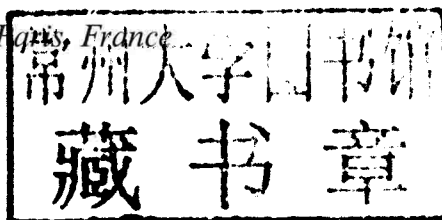 Paris, France
常州大学图书馆
藏书章